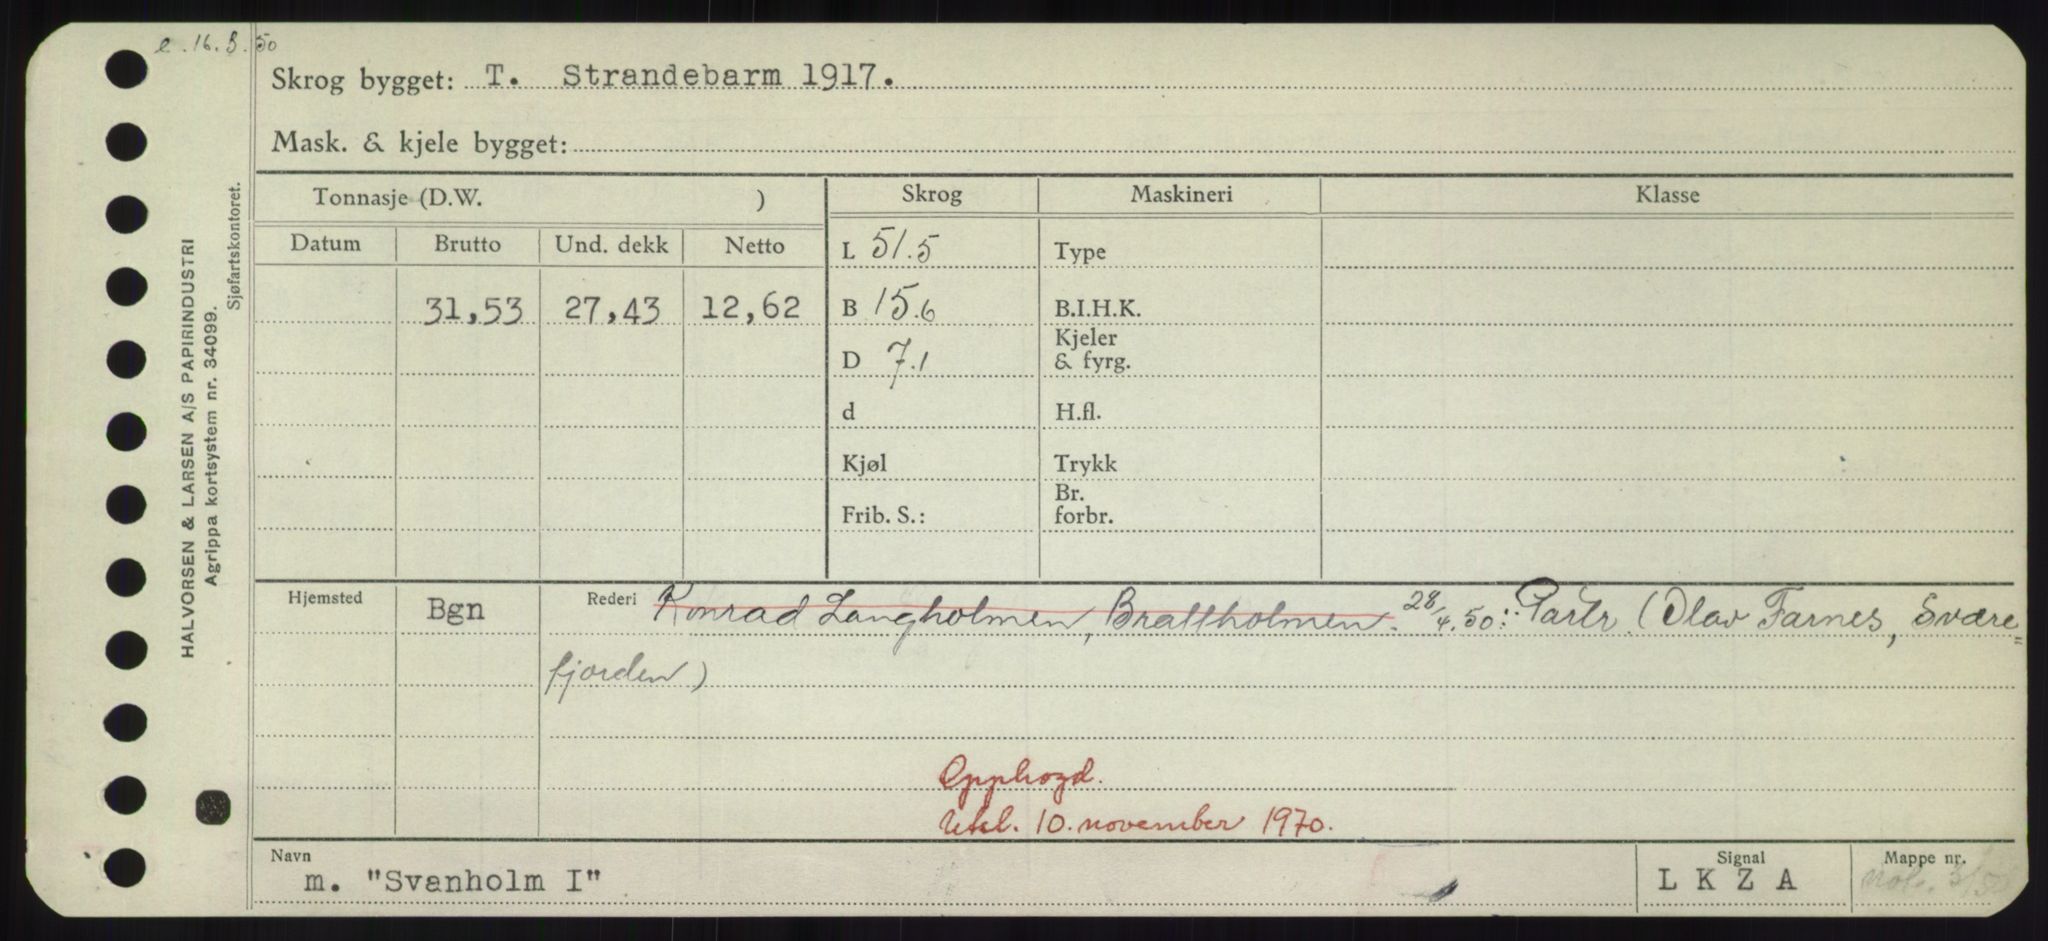 e. 16.3.50
Skrog bygget: T. Strandebarm 1917.
Mask. & kjele bygget:
Tonnasje (D.W. )
Skrog
Maskineri
Klasse
Datum
Brutto
Und. dekk
Netto
31,53
27,43
12,62
L 51.5
B 15.6
D 7.1
d
Kjøl
Frib. S.:
Type
B.I.H.K.
Kjeler
& fyrg.
H.fl.
Trykk
Br.
forbr.
Hjemsted
Bgn
Rederi Konrad Langholmen, Brattholmen. 28/4.50: Partr. (Olav Farnes, Svære=
fjorden)
Opphozd.
Utkl. 10. november 1970.
Navn
m. "Svanholm I"
Signal
L K Z A
Mappe nr.
HALVORSEN & LARSEN A/S PAPIRINDUSTRI
Agrippa kortsystem nr. 34099.
Sjøfartskontoret.